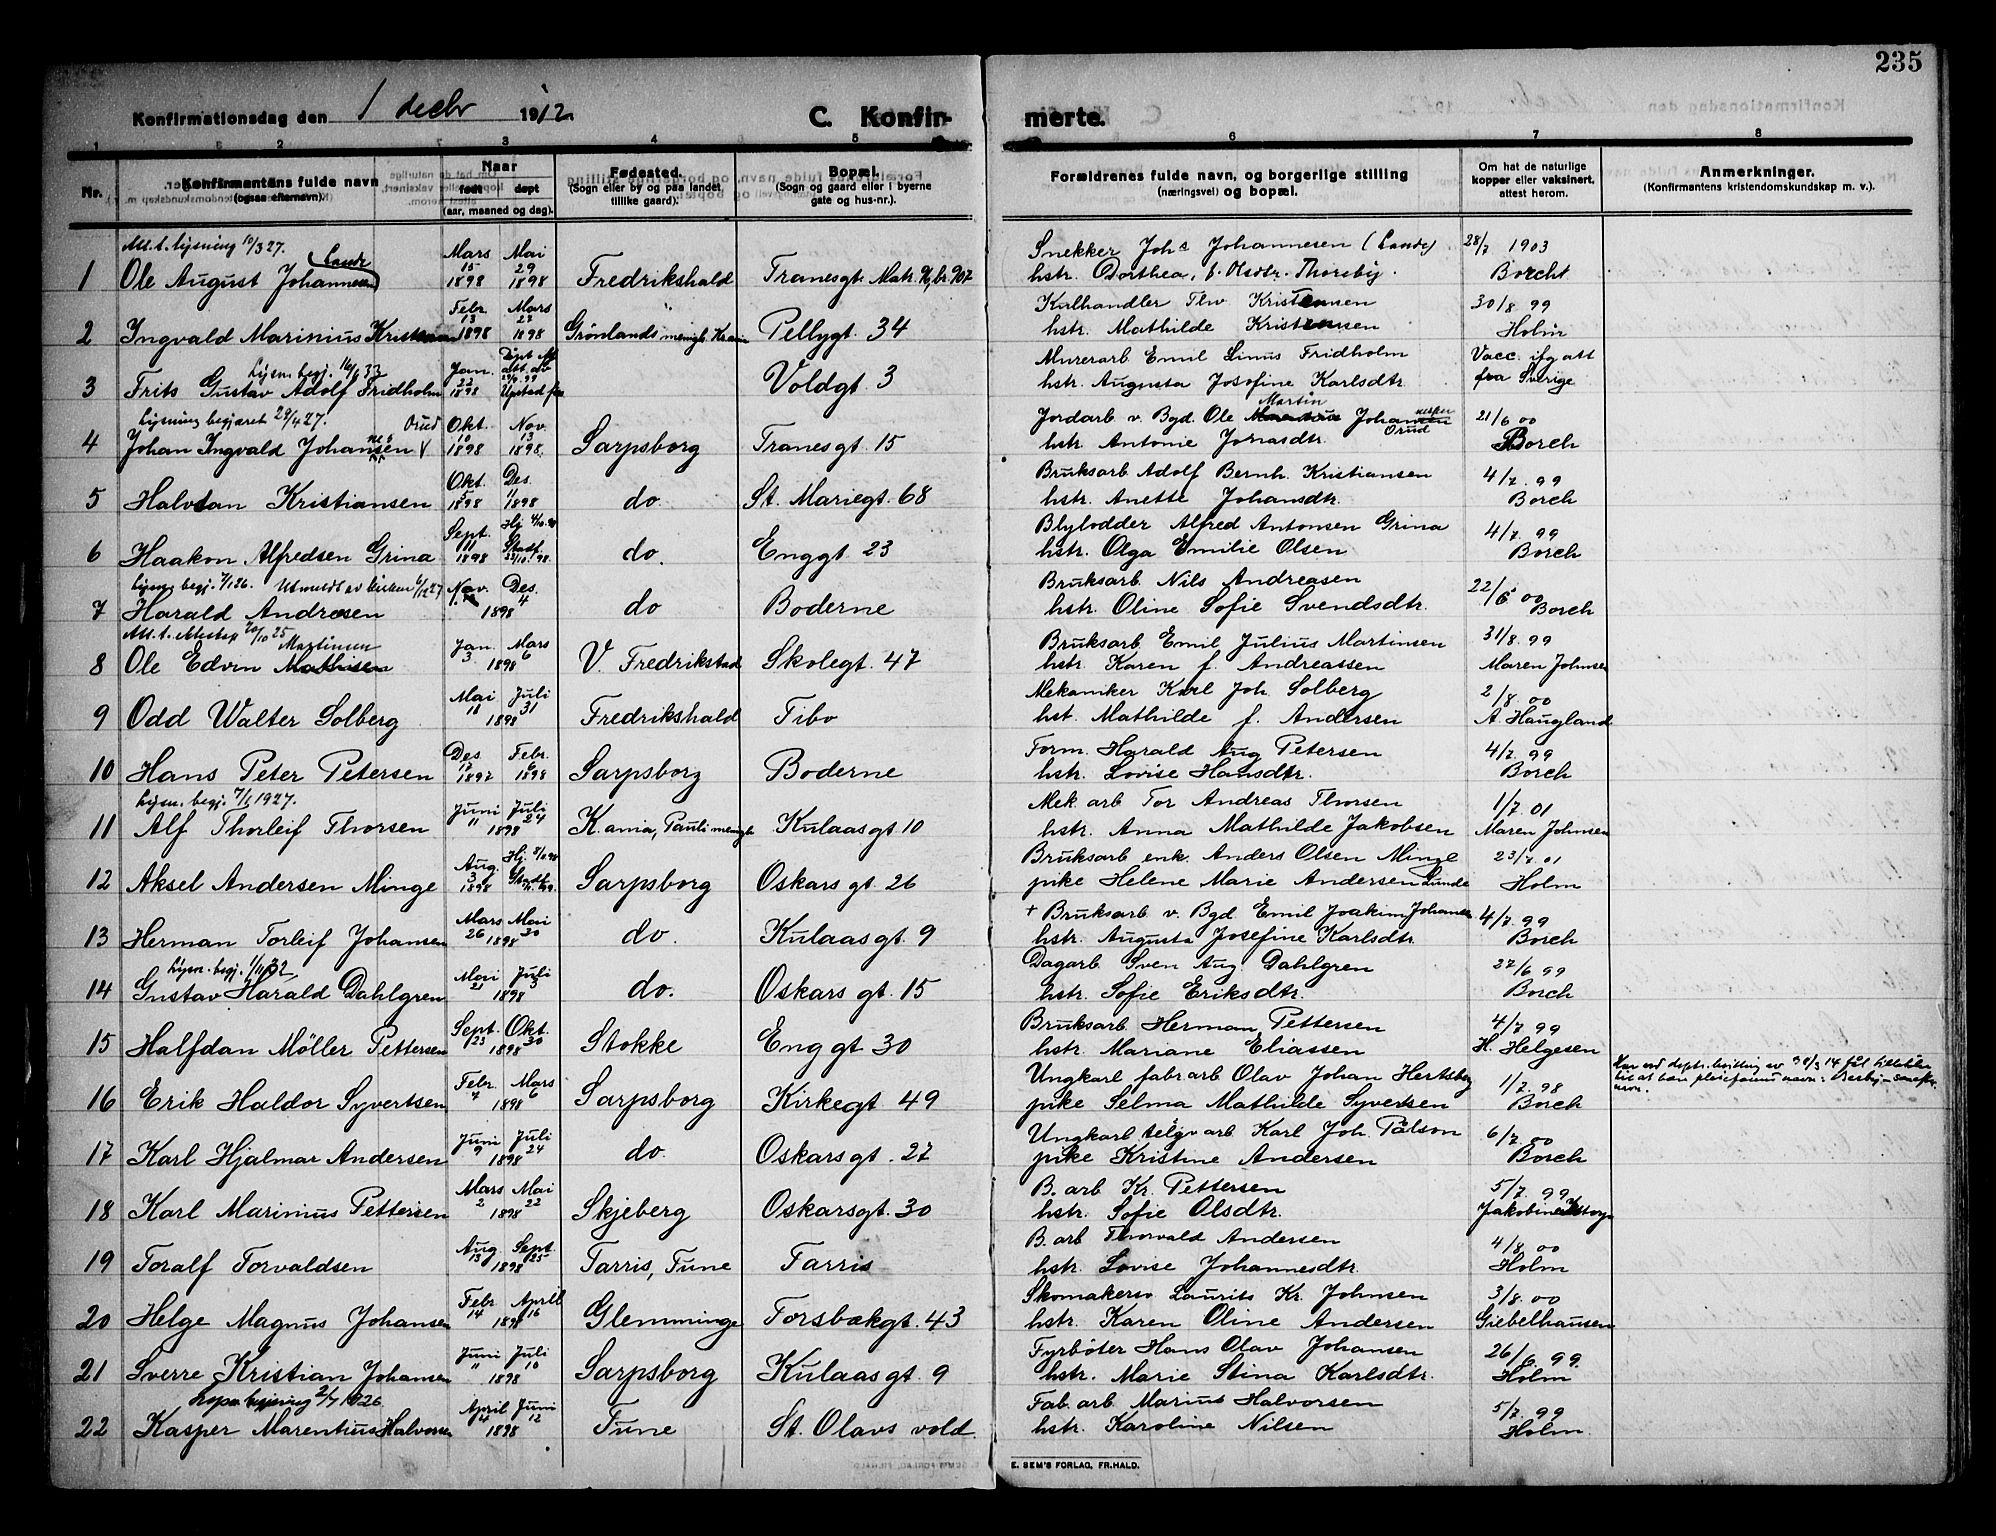 235
Konfirmationsdag den 1 decbr 1912
C. Konfirmerte.
1 2 3 4 5 6 7 8
Nr.
Konfirmantens fulde navn
(ogsaa efternavn).
Naar
født døpt
(aar, maaned og dag).
Fødested.
(Sogn eller by og paa landet tillike gaard).
Bopæl.
(Sogn og gaard eller i byerne gate og hus-nr.).
Forældrenes fulde navn, og borgerlige stilling
(næringsvei) og bopæl.
Om hat de naturlige kopper eller vaksinert, attest herom.
Anmerkninger.
(Konfirmantens kristendomskundskap m. v.).
Att. t. lysning 10/3 27.
1 Ole August Johannesen Lande Mars 15 1898 Mai 29 1898 Fredrikshald Tranesgt. Snekker Johs Johannesen (Lande) hstr. Dorthea, f. Olsdtr. Thoreby. 28/7 1903 Borcht
2 Ingvald Marinius Febr. 13 1898 Mars 23 1898 Grønlands menigh. Pellygt. 34 Kulhandler Thv. Kristensen hstr. Mathilde Kristensen 30/8 99 Holm
Lysn. begj. 33
3 Frits Gustav Adolf Fridholm Jan. 22 1898 Voldgt. 3 Murerarb Emil Linus Fridholm hstr. Augusta Josefine Karlsdtr Vacc. ifg att fra Sverige
Lysning begjæret 29/4 27.
4 Johan Ingvald Johansen Orud Okt. 10 1898 Nov. 13 1898. Sarpsborg Tranesgt. 15 Jordarb v. Bgd. Ole Martin Orud hstr. Antonie Jonasdtr. 21/6 00 Borch
5 Halvdan Kristiansen Okt. 5 1898 Des. 11 1898 do. St. Mariegt. 68 Bruksarb Adolf Bernh. Kristiansen hstr. Anette Johansdtr. 4/7. 99 Borch
6 Haakon Alfredsen Grina Sept. 11 1898 Hj. 4/10.98 Stadf. do. Enggt 23 Blylodder Alfred Antonsen Grina hstr. Olga Emilie Olsen 4/7. 99 Borch
Lysn. begj. 7/1 26. Utmeldt av kirken
7 Harald Andresen Nov. Des. 4 1898 do Boderne Bruksarb Nils Andreasen hstr. Oline Sofie Svendsdtr. 22/6 00 Borch
8 Ole Edvin Mathisen Martinsen Jan. 3 Mars 6 1898 V. Fredrikstad Skolegt. 47 Bruksarb. Emil Julius Martinsen hstr. Karen f. Andreassen 31/8. 99 Maren Johnsen
9 Odd Walter Solberg Mai 18 Juli 31 1898 Fredrikshald Tibo Mekaniker Karl Joh. Solberg hst. Mathilde f. Andersen 2/8 00 A Haugland
10 Hans Peter Petersen Des. 17 1897 Febr. 6 1898 Sarpsborg Boderne Form. Harald Aug Petersen hstr. Lovise Hansdtr. 4/7. 99 Borch
Lysn. begj. 7/1 1927.
11 Alf Thorleif Thorsen Juni 11 Juli 24 1898 K.ania, Pauli menigh Kulaasgt 10 Mek arb Tor Andreas Thorsen hstr. Anna Mathilde Jakobsen 1/7. 01 Maren Johnsen
12 Aksel Andersen Minge Aug. 3 1898 Sarpsborg Oskars gt. 26 Bruksarb enk. Anders Olsen Minge pike Helene Marie Andersen Lunde 23/7. 01 Holm
13 Herman Torleif Johansen Mars 26 Mai 30 1898 do. Kulaasgt. 9 + Bruksarb v. Bgd. Emil Joakim Johansen hstr. Augusta Josefine Karlsdtr 4/7. 99 Borch
Lysn. begj. 32
14 Gustav Harald Dahlgren Mai 21 Juli 3 1898 do. Oskars gt. 15 Dagarb Sven Aug. Dahlgren hstr. Sofie Eriksdtr. 27/6 99 Borch
15 Halfdan Møller Pettersen Sept. 23 Okt. 30 1898 Stokke Enggt 30 Bruksarb Herman Pettersen hstr. Mariane Eliassen 4/7. 99 H. Helgesen
16 Erik Haldor Syvertsen Febr. 7 Mars 6 1898 Sarpsborg Kirkegt. 49 Ungkarl fabr arb Olav Johan Hertsberg pike Selma Mathilde Syvertsen 1/7. 98 Borch
Har ved dept. bevilling av 30/3 14 fåt tilladelse til at bære pleiefarens navn:
17 Karl Hjalmar Andersen Juni 9 Juli 24 1898 do. Oskarsgt. 27 Ungkarl telgv arb Karl Joh. Pålson pike Kristine Andersen 6/7. 00 Borch
18 Karl Marinius Pettersen Mars 2 Mai 22 1898 Skjeberg Oskarsgt. 30 B. arb Kr. Pettersen hstr. Sofie Olsdtr. 5/7. 99 Jakobine
19 Toralf Torvaldsen Aug. 13 Sept. 25 1898 Tarris, Tune Tarris B. arb Thorvald Andersen hstr. Lovise Johannesdtr. 4/8 00 Holm
20 Helge Magnus Johansen Febr. 14 April 16 1898 Glemminge Torsbækgt. 43 Skomakersv Laurits Kr. Johnsen hstr. Karen Oline Andersen 3/8. 00 Giebelhausen
21 Sverre Kristian Johansen Juni 11 Juli 10 1898 Sarpsborg Kulaasgt. 9 Fyrbøter Hans Olav Johansen hstr. Marie Stina Karlsdtr. 26/6. 99. Holm
22 Kasper Marentius Halvorsen April 4 Juni 12 1898 Tune St. Olavs vold Fab. arb. Marius Halvorsen hstr. Karoline Nilsen 5/7. 99 Holm.
E. SEM'S FORLAG, FR.HALD.